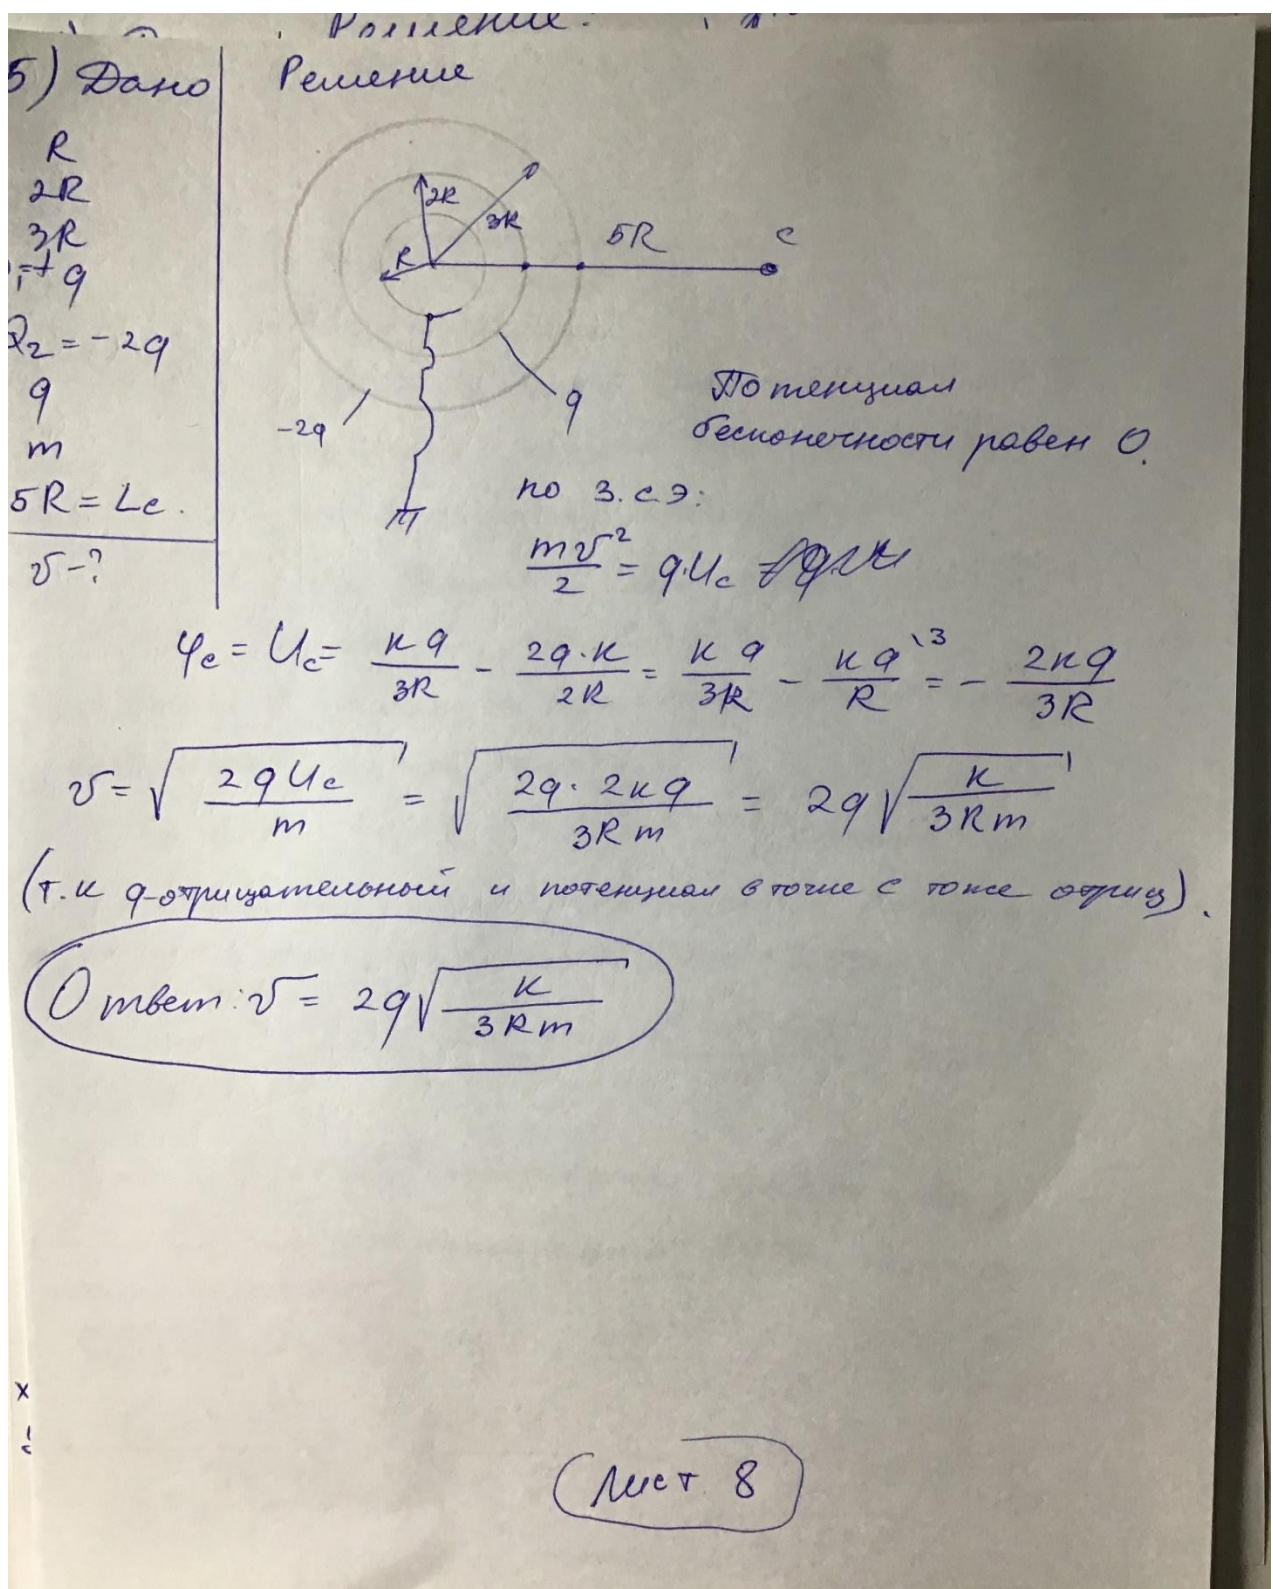 Решение:
5) Дано
Решение
R
2R
3R
=+q
Q₂ = -2q
q
m
5R = Lc.
v-?
2R
3R
R
5R
c
-2q
q
Потенциал
бесконечности равен 0.
по З.С.Э:
mv²/2 = q·Uc
φc = Uc = кq/3R - 2q·к/2R = кq/3R - кq/R \3 = - 2кq/3R
v = √(2qUc/m) = √(2q·2кq/3Rm) = 2q√(к/3Rm)
(т.к q-отрицательный и потенциал в точке с тоже отриц).
Ответ: v = 2q√(к/3Rm)
x
Лист 8